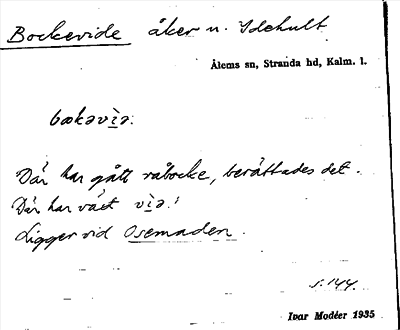 Bockevide åker n. Idehult
Ålems sn, Stranda hd, Kalm. l.
bɷkəvìə.
Där har gått råbocke, berättades det.
Där har växt vìə.!
Ligger vid Osemaden.
s. 144.
Ivar Modéer 1935